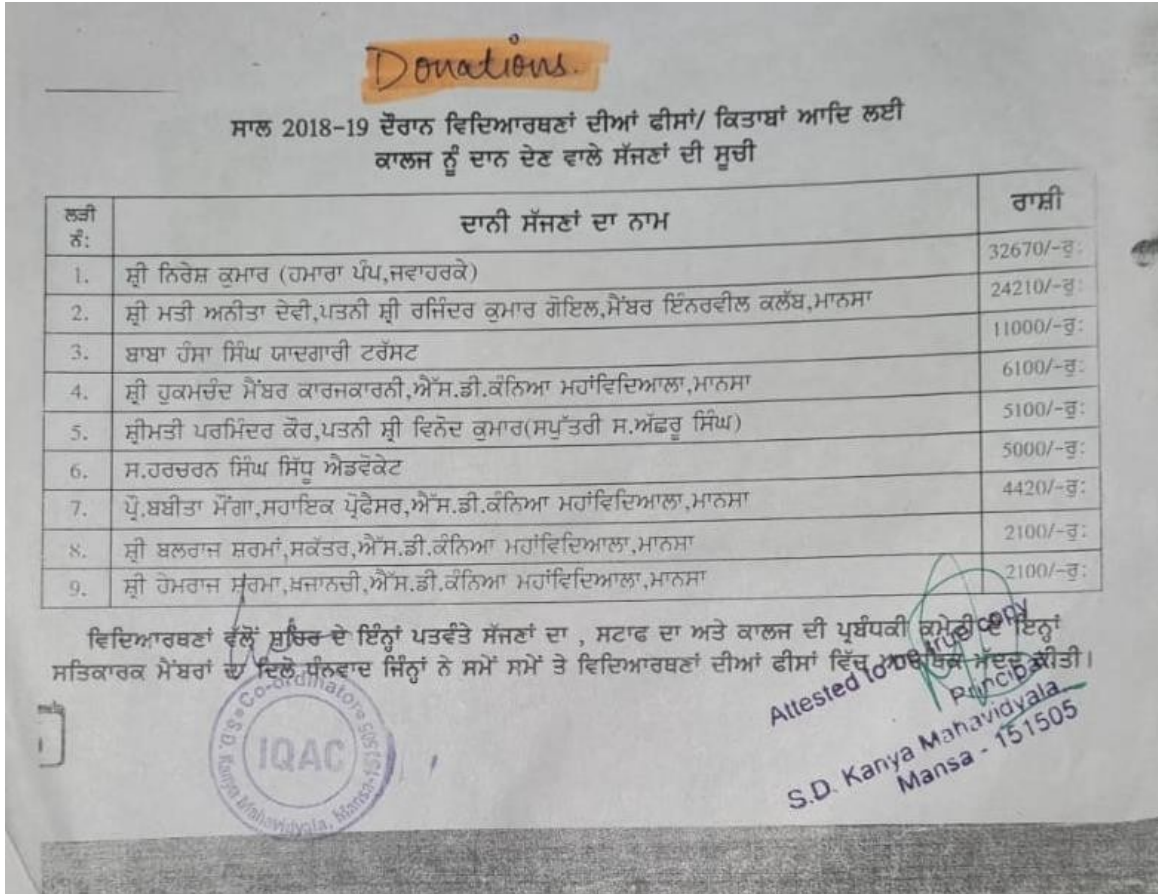 Donations.
ਸਾਲ 2018-19 ਦੌਰਾਨ ਵਿਦਿਆਰਥਣਾਂ ਦੀਆਂ ਫੀਸਾਂ/ ਕਿਤਾਬਾਂ ਆਦਿ ਲਈ
ਕਾਲਜ ਨੂੰ ਦਾਨ ਦੇਣ ਵਾਲੇ ਸੱਜਣਾਂ ਦੀ ਸੂਚੀ
ਲੜੀ ਨੰ: ਦਾਨੀ ਸੱਜਣਾਂ ਦਾ ਨਾਮ ਰਾਸ਼ੀ
1. ਸ਼੍ਰੀ ਨਿਰੇਸ਼ ਕੁਮਾਰ (ਹਮਾਰਾ ਪੰਪ,ਜਵਾਹਰਕੇ) 32670/-ਰੁ:
2. ਸ਼੍ਰੀ ਮਤੀ ਅਨੀਤਾ ਦੇਵੀ,ਪਤਨੀ ਸ਼੍ਰੀ ਰਜਿੰਦਰ ਕੁਮਾਰ ਗੋਇਲ,ਮੈਂਬਰ ਇੰਨਰਵੀਲ ਕਲੱਬ,ਮਾਨਸਾ 24210/-ਰੁ:
3. ਬਾਬਾ ਹੰਸਾ ਸਿੰਘ ਯਾਦਗਾਰੀ ਟਰੱਸਟ 11000/-ਰੁ:
4. ਸ਼੍ਰੀ ਹੁਕਮਚੰਦ ਮੈਂਬਰ ਕਾਰਜਕਾਰਨੀ,ਐੱਸ.ਡੀ.ਕੰਨਿਆ ਮਹਾਂਵਿਦਿਆਲਾ,ਮਾਨਸਾ 6100/-ਰੁ:
5. ਸ਼੍ਰੀਮਤੀ ਪਰਮਿੰਦਰ ਕੌਰ,ਪਤਨੀ ਸ਼੍ਰੀ ਵਿਨੋਦ ਕੁਮਾਰ(ਸਪੁੱਤਰੀ ਸ.ਅੱਛਰੂ ਸਿੰਘ) 5100/-ਰੁ:
6. ਸ.ਹਰਚਰਨ ਸਿੰਘ ਸਿੱਧੂ ਐਡਵੋਕੇਟ 5000/-ਰੁ:
7. ਪ੍ਰੋ.ਬਬੀਤਾ ਮੌਂਗਾ,ਸਹਾਇਕ ਪ੍ਰੋਫੈਸਰ,ਐੱਸ.ਡੀ.ਕੰਨਿਆ ਮਹਾਂਵਿਦਿਆਲਾ,ਮਾਨਸਾ 4420/-ਰੁ:
8. ਸ਼੍ਰੀ ਬਲਰਾਜ ਸ਼ਰਮਾਂ,ਸਕੱਤਰ,ਐੱਸ.ਡੀ.ਕੰਨਿਆ ਮਹਾਂਵਿਦਿਆਲਾ,ਮਾਨਸਾ 2100/-ਰੁ:
9. ਸ਼੍ਰੀ ਹੇਮਰਾਜ ਸ਼ਰਮਾ,ਖ਼ਜਾਨਚੀ,ਐੱਸ.ਡੀ.ਕੰਨਿਆ ਮਹਾਂਵਿਦਿਆਲਾ,ਮਾਨਸਾ 2100/-ਰੁ:
ਵਿਦਿਆਰਥਣਾਂ ਵੱਲੋਂ ਸ਼ਹਿਰ ਦੇ ਇੰਨ੍ਹਾਂ ਪਤਵੰਤੇ ਸੱਜਣਾਂ ਦਾ , ਸਟਾਫ ਦਾ ਅਤੇ ਕਾਲਜ ਦੀ ਪ੍ਰਬੰਧਕੀ ਕਮੇਟੀ ਦੇ ਇਨ੍ਹਾਂ
ਸਤਿਕਾਰਕ ਮੈਂਬਰਾਂ ਦਾ ਦਿਲੋਂ ਧੰਨਵਾਦ ਜਿੰਨ੍ਹਾਂ ਨੇ ਸਮੇਂ ਸਮੇਂ ਤੇ ਵਿਦਿਆਰਥਣਾਂ ਦੀਆਂ ਫੀਸਾਂ ਵਿੱਚ ਮੱਦਦ ਕੀਤੀ।
Co-ordinator
IQAC
S.D. Kanya Mahavidyala, Mansa-151505
Attested to be true copy
Principal
S.D. Kanya Mahavidyala
Mansa - 151505